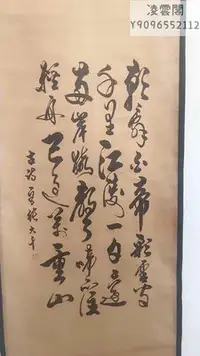 凌雲閣
Y9096552112
朝辭白帝彩雲間
千里江陵一日還
兩岸猿聲啼不住
輕舟已過萬重山
大千